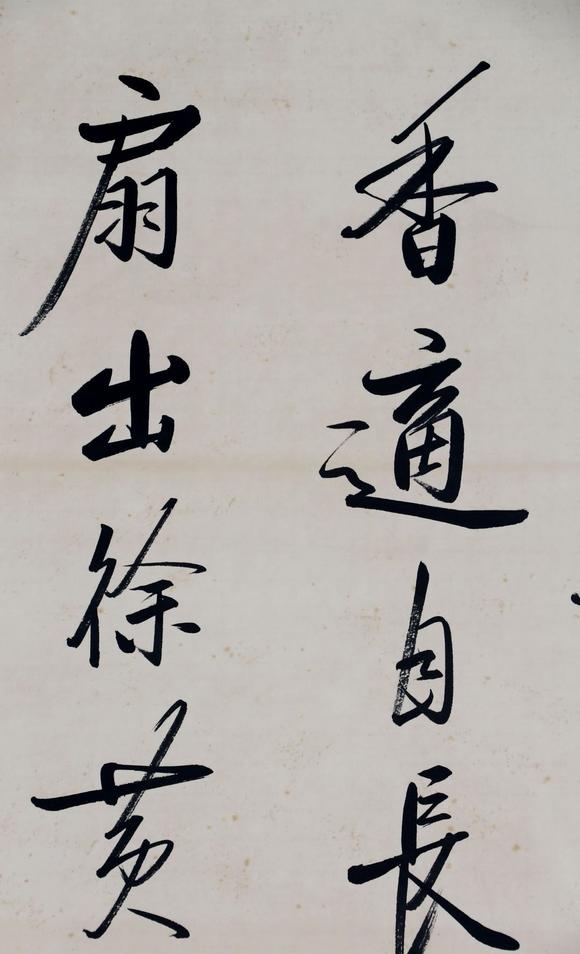 香適自長
扇出徐黄